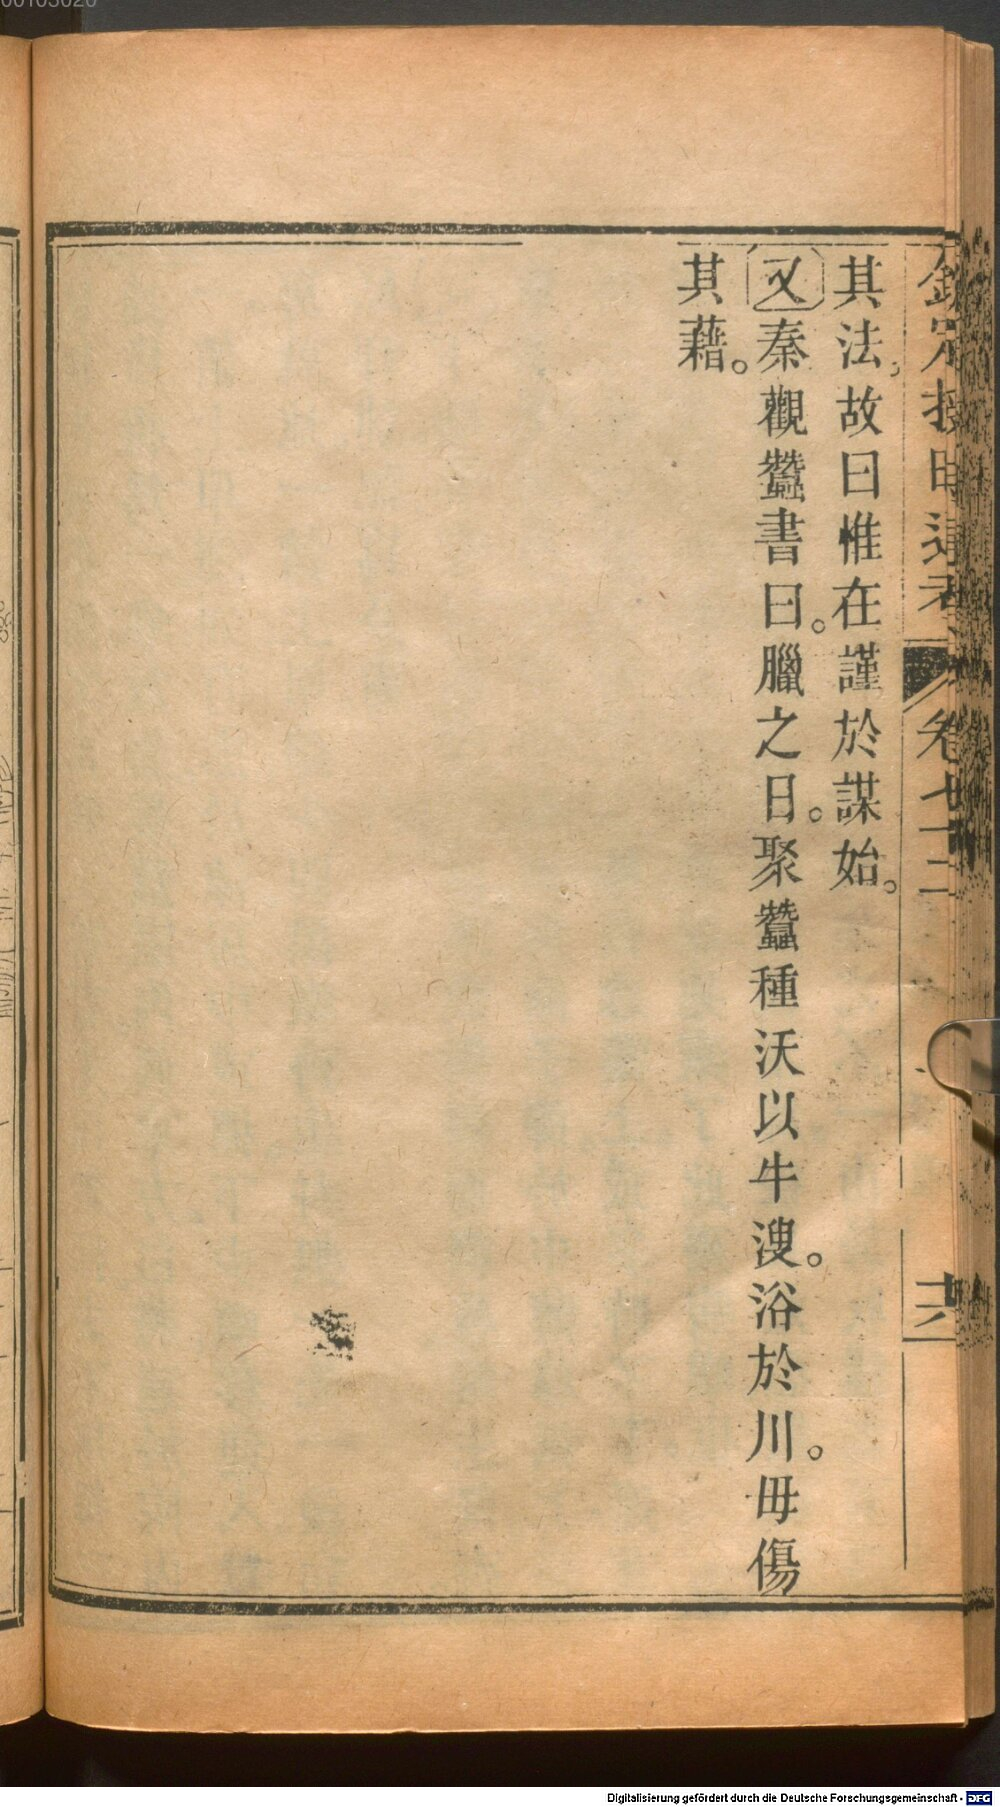 欽定授時通考 卷七十二 六
其法故曰惟在謹於謀始。
又秦觀蠶書曰。臘之日。聚蠶種沃以牛溲。浴於川。毋傷
其藉。
Digitalisierung gefördert durch die Deutsche Forschungsgemeinschaft - DFG